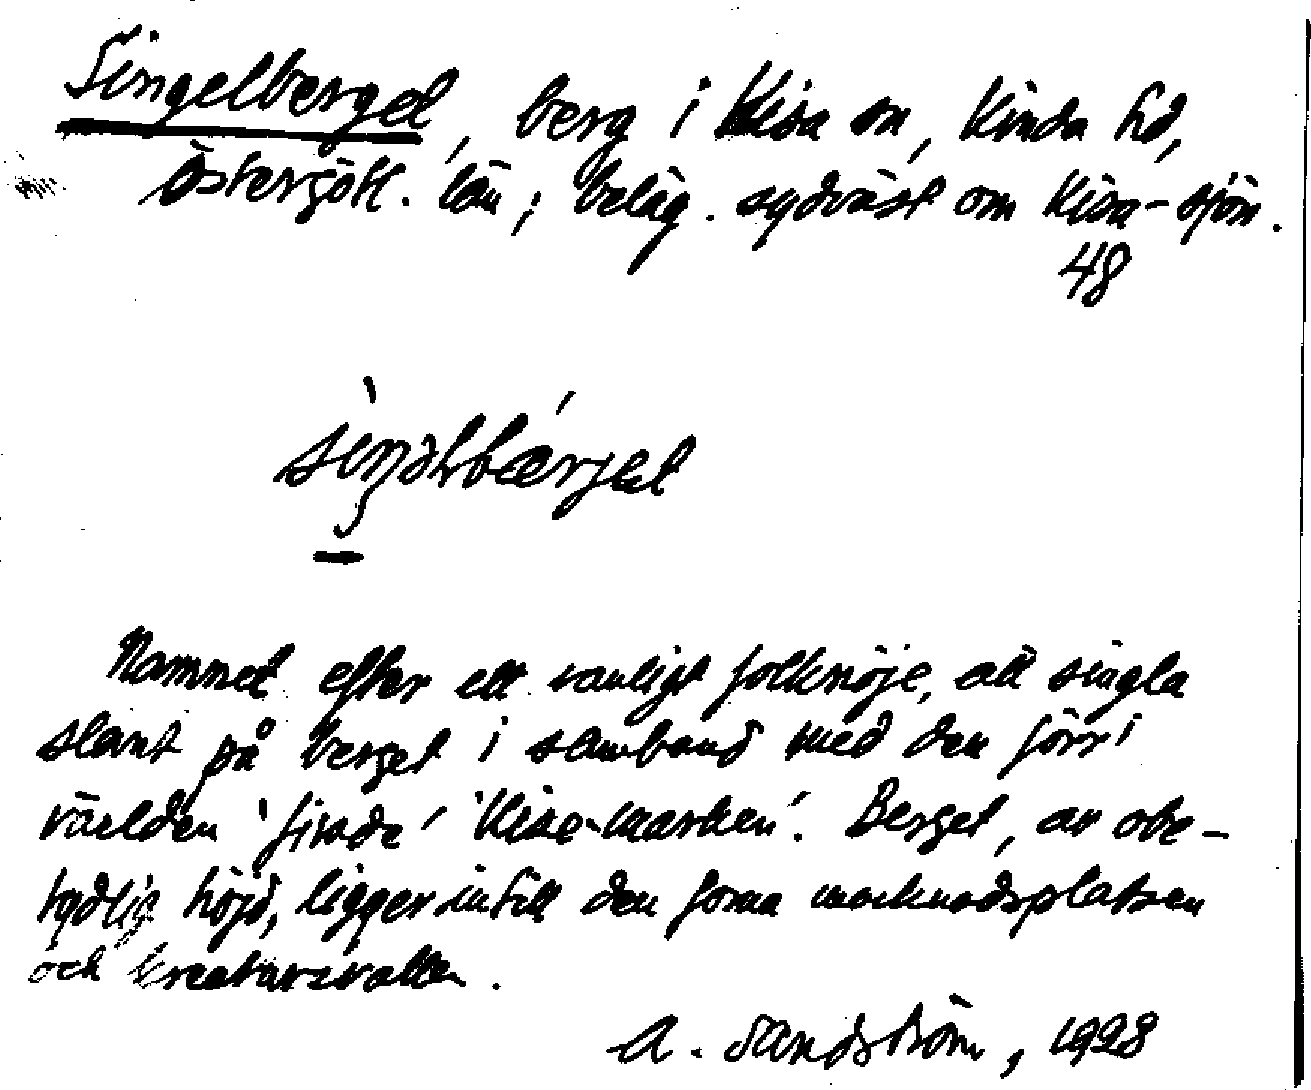 Singelberget, berg i Kisa sn, Kinda hd,
Östergötl. län; beläg. sydväst om Kisa-sjön.
48
siŋəlbærjet
Namnet efter ett vanligt folknöje, att singla
slant på berget i samband med den förr i
världen 'firade' 'Kisa-marken'. Berget, av obe-
tydlig höjd, ligger intill den forna marknadsplatsen
och kreatursvallen.
A. Sandström, 1928